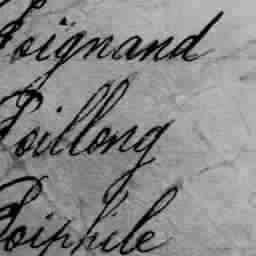 Poignand
Poillong
Poiphile